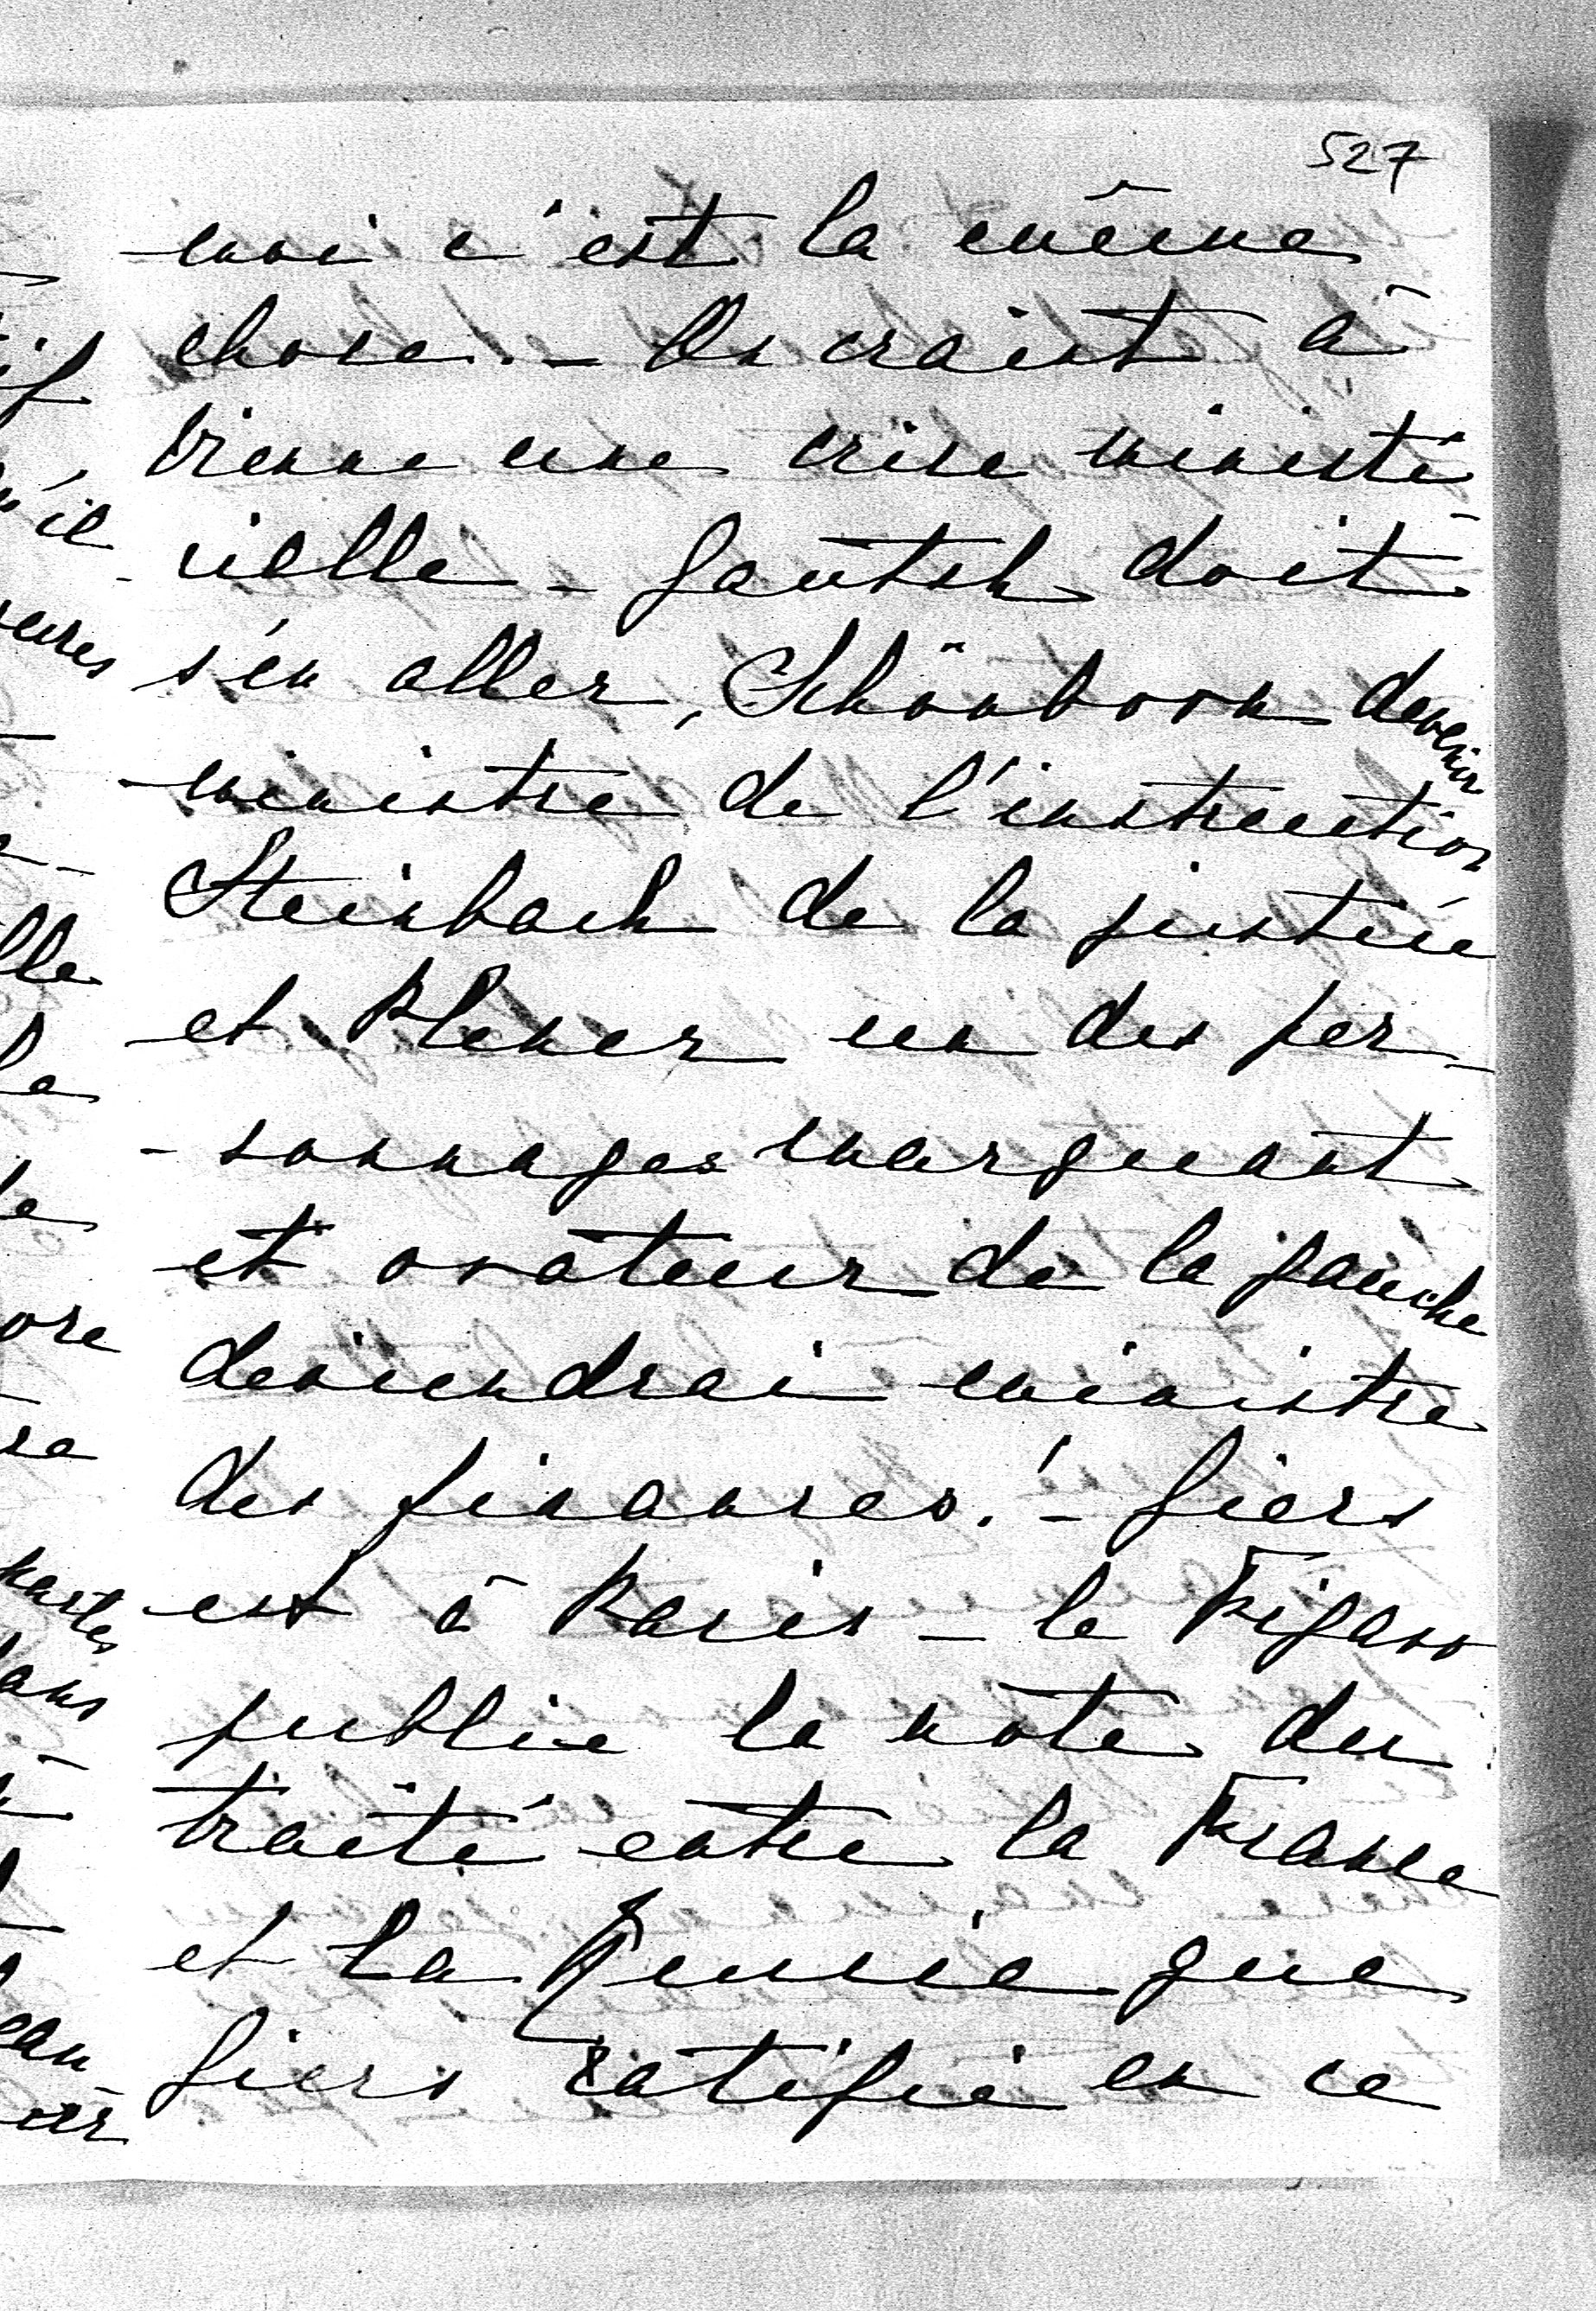 527
moi c'est la même
chose. - On craint à
Vienne une crise ministé
rielle - Gautsh doit
s'en aller, Schönborn devenir
ministre de l'instruction
Steinbach de la justice
et Plener un des per-
- sonnages marquant
et orateur de la gauche
deviendrai ministre
des finances! - Giers
est à Paris - le Figaro
publie la note du
traité entre la France
et la Russie que
Giers ratifie en ce